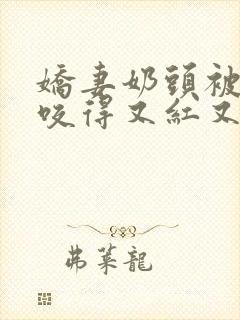 嬌妻奶頭被
咬得又紅又
弗萊龍